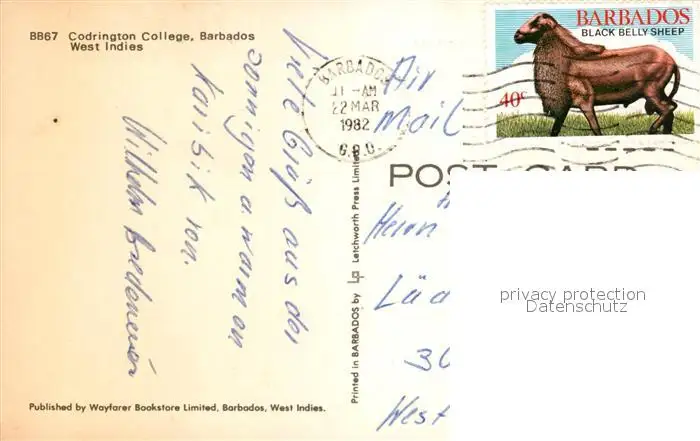 BB67 Codrington College, Barbados
West Indies
Viele Grüße aus der
sonnigen u. warmen
Karibik von.
Wilhelm
Published by Wayfarer Bookstore Limited, Barbados, West Indies.
Printed in BARBADOS by Letchworth Press Limited
BARBADOS
11-AM
22 MAR
1982
G.P.O.
BARBADOS
BLACK BELLY SHEEP
40c
Air
Mail
POST CARD
Herrn
Lüd
30
West
privacy protection
Datenschutz